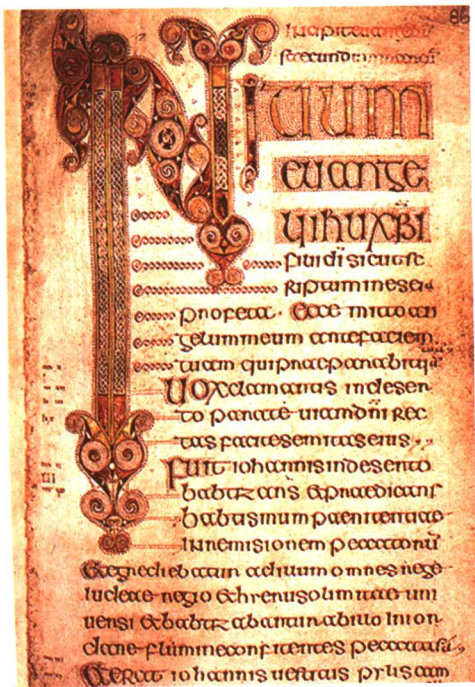 86
Incipit euangelii
secundum marcum
INITIUM
EUANGE
LII IHU XPI
fili di sicut sc
riptum in esaia
profeta. Ecce mitto an
gelum meum ante faciem
tuam qui praeparabit
Uox clamantis in deser
to parate uiam dni rec
tas facite semitas eius
Fuit iohannis in deserto
babtizans & praedicans
babtismum paenitentiae
in remisionem peccatorū
& egrediebatur ad illum omnes
iudeae regio & hierusolimitae uni
uersi & babtizabantur ab illo in ior
dane flumine confitentes peccata
& erat iohannis uestitus pilis cam